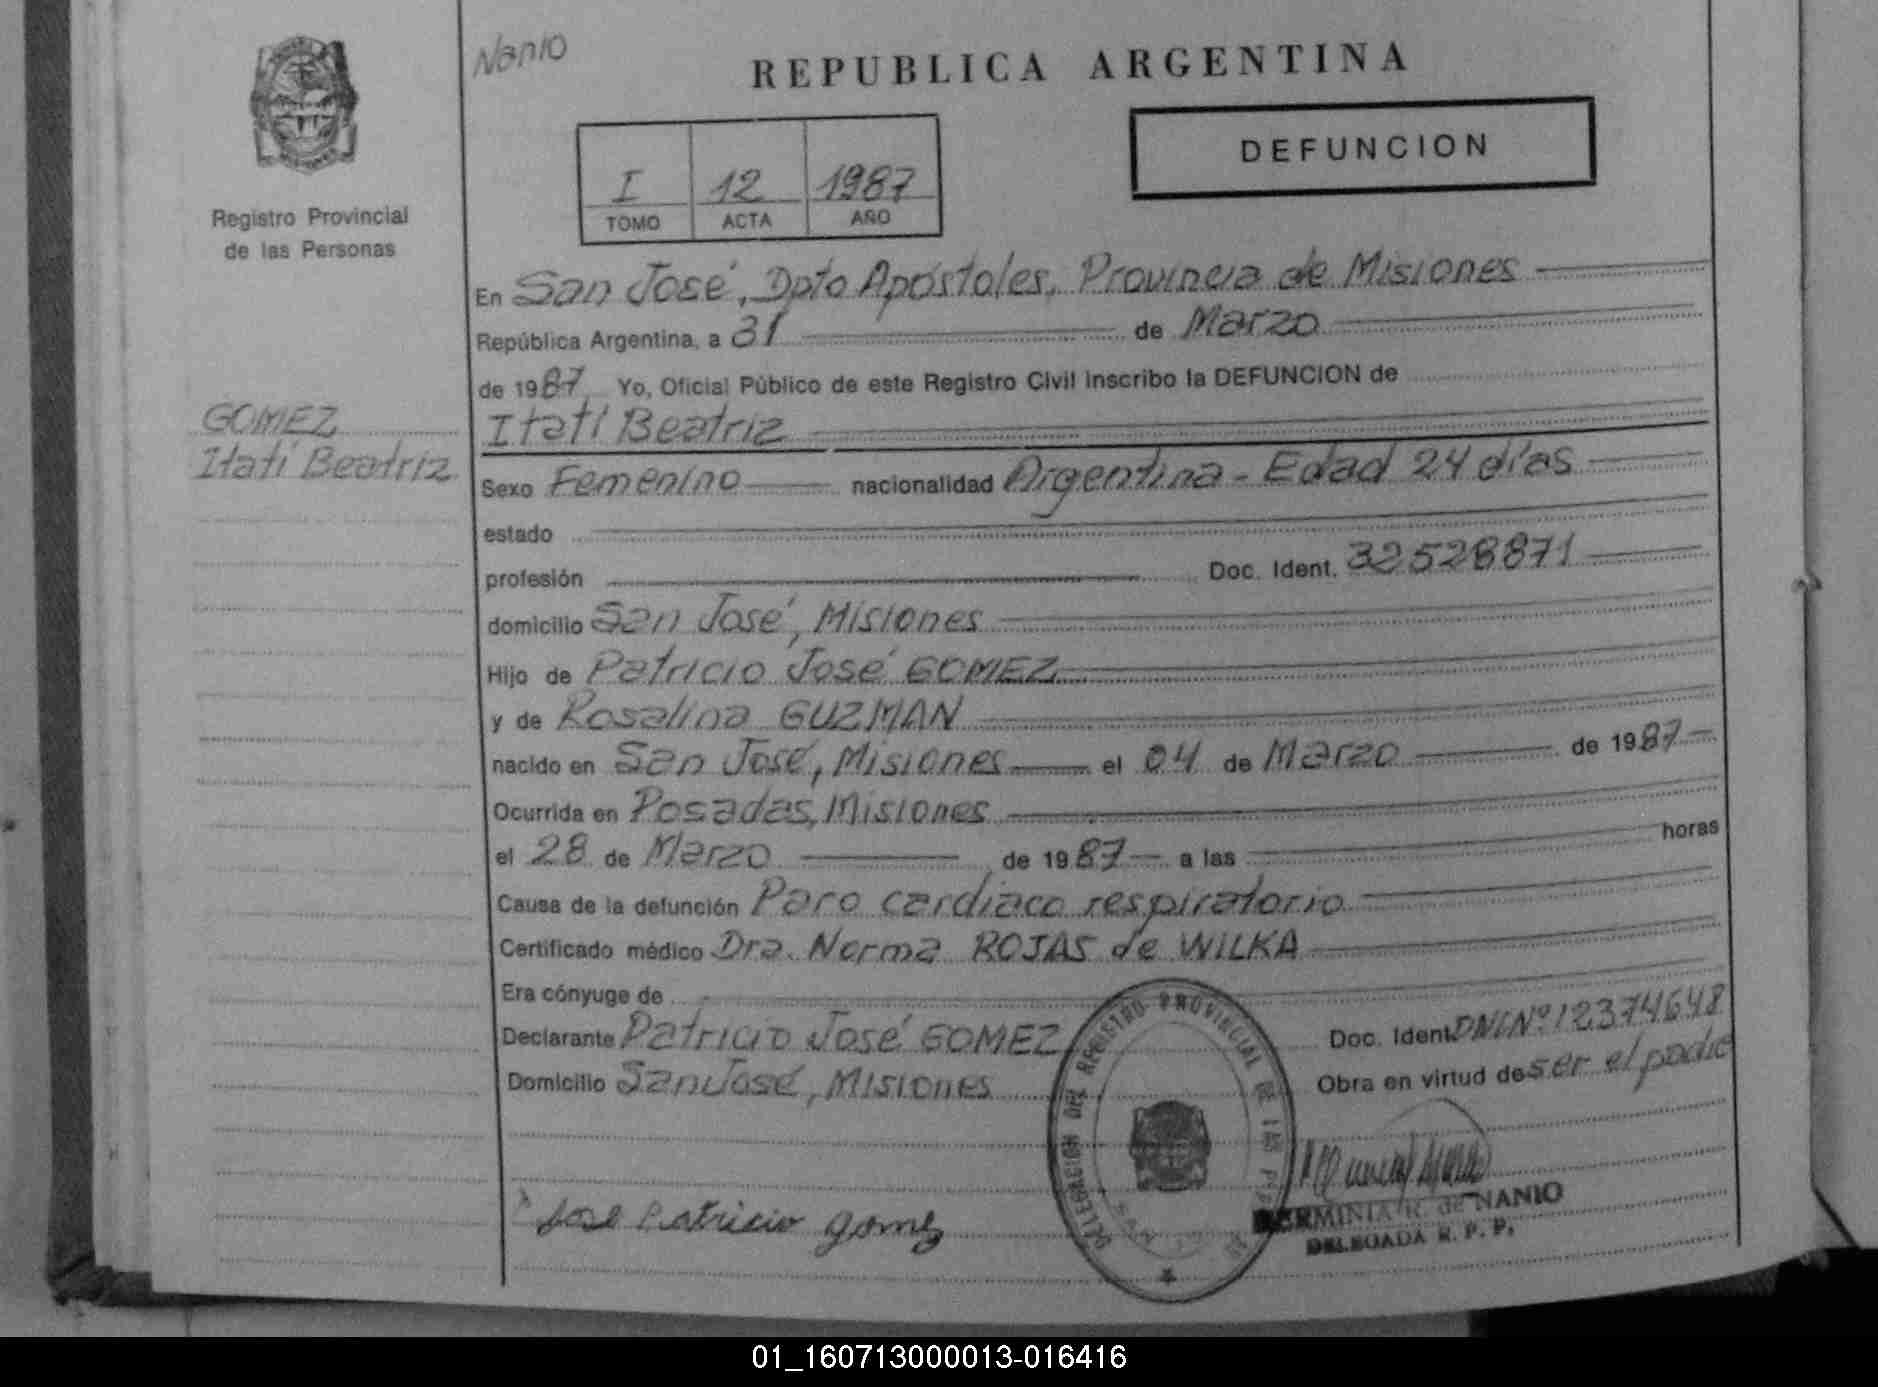 Nanio
REPUBLICA ARGENTINA
DEFUNCION
I 12 1987
TOMO ACTA AÑO
Registro Provincial
de las Personas
En San José, Dpto Apóstoles, Provincia de Misiones
República Argentina, a 31 de Marzo
de 1987 Yo, Oficial Público de este Registro Civil inscribo la DEFUNCION de
GOMEZ
Itatí Beatriz
Itatí Beatriz
Sexo Femenino nacionalidad Argentina - Edad 24 días
estado
profesión Doc. Ident. 32528871
domicilio San José, Misiones
Hijo de Patricio José GOMEZ
y de Rosalina GUZMAN
nacido en San José, Misiones el 04 de Marzo de 1987
Ocurrida en Posadas, Misiones
el 28 de Marzo de 1987 a las horas
Causa de la defunción Paro cardiaco respiratorio
Certificado médico Dra. Norma ROJAS de WILKA
Era cónyuge de
Declarante Patricio José GOMEZ Doc. Ident. DNI Nº 12374648
Domicilio San José, Misiones Obra en virtud de ser el padre
DELEGACION DEL REGISTRO PROVINCIAL DE LAS
Jose Patricio gomez
HERMINIA R. de NANIO
DELEGADA R. P. P.
01_160713000013-016416